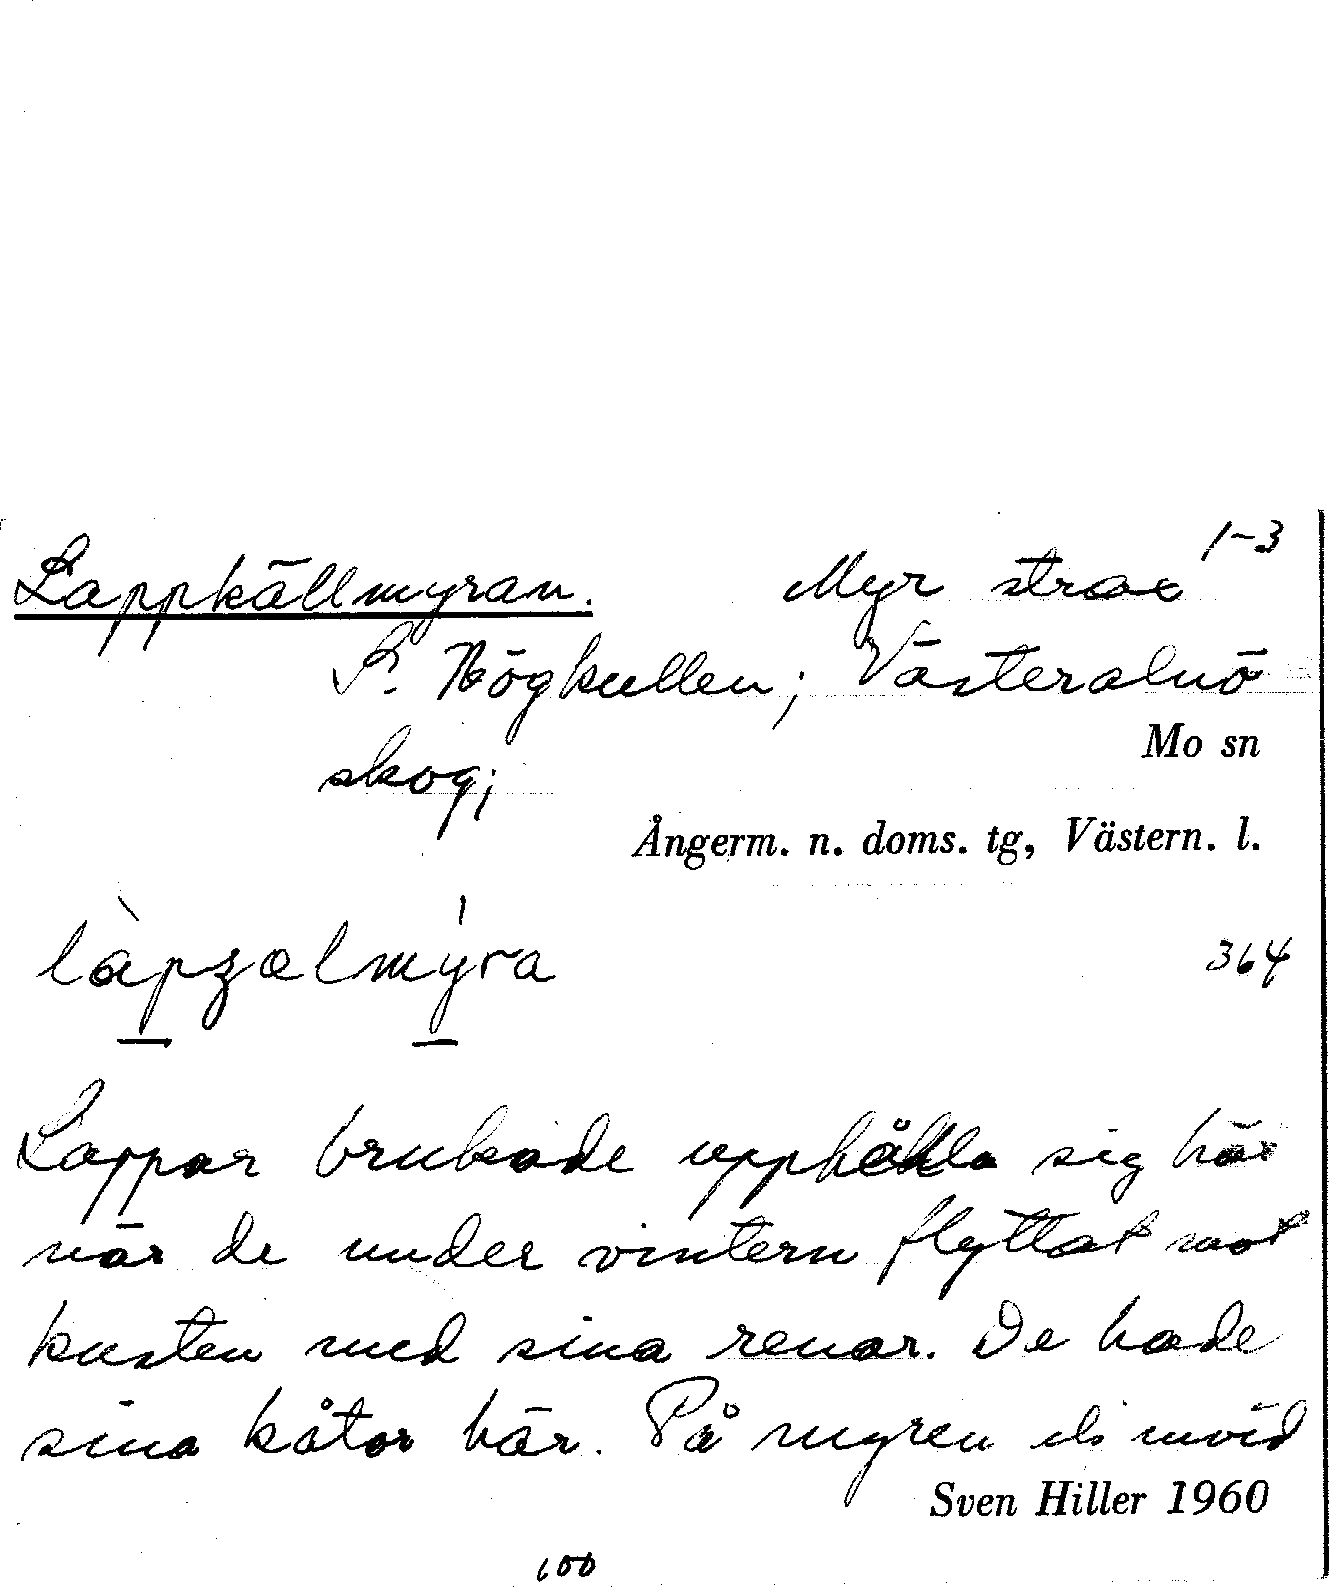 1-3
Lappkällmyran. Myr strax
S. Högkullen; Västeralnö
skog;
Mo sn
Ångerm. n. doms. tg, Västern. l.
làpʒælmýra
364
Lappar brukade upphålla sig här
när de under vintern flyttat mot
kusten med sina renar. De hade
sina kåtor här. På myren els invid
Sven Hiller 1960
100